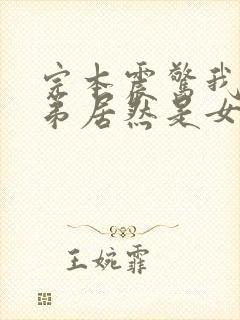 完本震惊我
弟居然是女
王婉霏